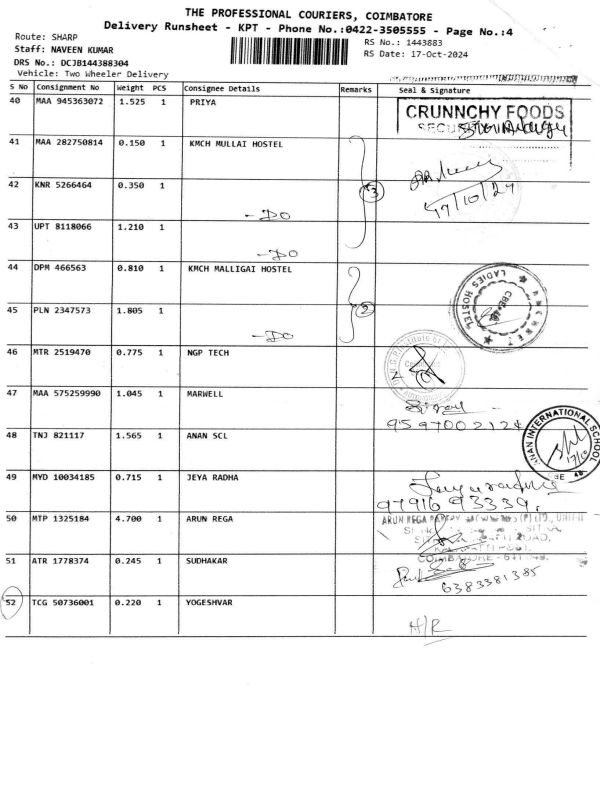 THE PROFESSIONAL COURIERS, COIMBATORE
Delivery Runsheet - KPT - Phone No.:0422-3505555 - Page No.:4
Route: SHARP
RS No.: 1443883
Staff: NAVEEN KUMAR
RS Date: 17-Oct-2024
DRS No.: DCJB144388304
Vehicle: Two Wheeler Delivery
S No Consignment No Weight PCS Consignee Details Remarks Seal & Signature
40 MAA 945363072 1.525 1 PRIYA
CRUNNCHY FOODS
41 MAA 282750814 0.150 1 KMCH MULLAI HOSTEL
42 KNR 5266464 0.350 1 - DO 3
17/10/24
43 UPT 8118066 1.210 1 - DO
44 DPM 466563 0.810 1 KMCH MALLIGAI HOSTEL
LADIES HOSTEL
45 PLN 2347573 1.805 1 - DO 2
46 MTR 2519470 0.775 1 NGP TECH
47 MAA 575259990 1.045 1 MARWELL
9597002124
48 TNJ 821117 1.565 1 ANAN SCL
ANAN INTERNATIONAL SCHOOL
17/10
49 MYD 10034185 0.715 1 JEYA RADHA
Jeyaradha
97916 93339.
50 MTP 1325184 4.700 1 ARUN REGA
ARUN REGA
COIMBATORE - 641
51 ATR 1778374 0.245 1 SUDHAKAR
6383381385
52 TCG 50736001 0.220 1 YOGESHVAR
H/R